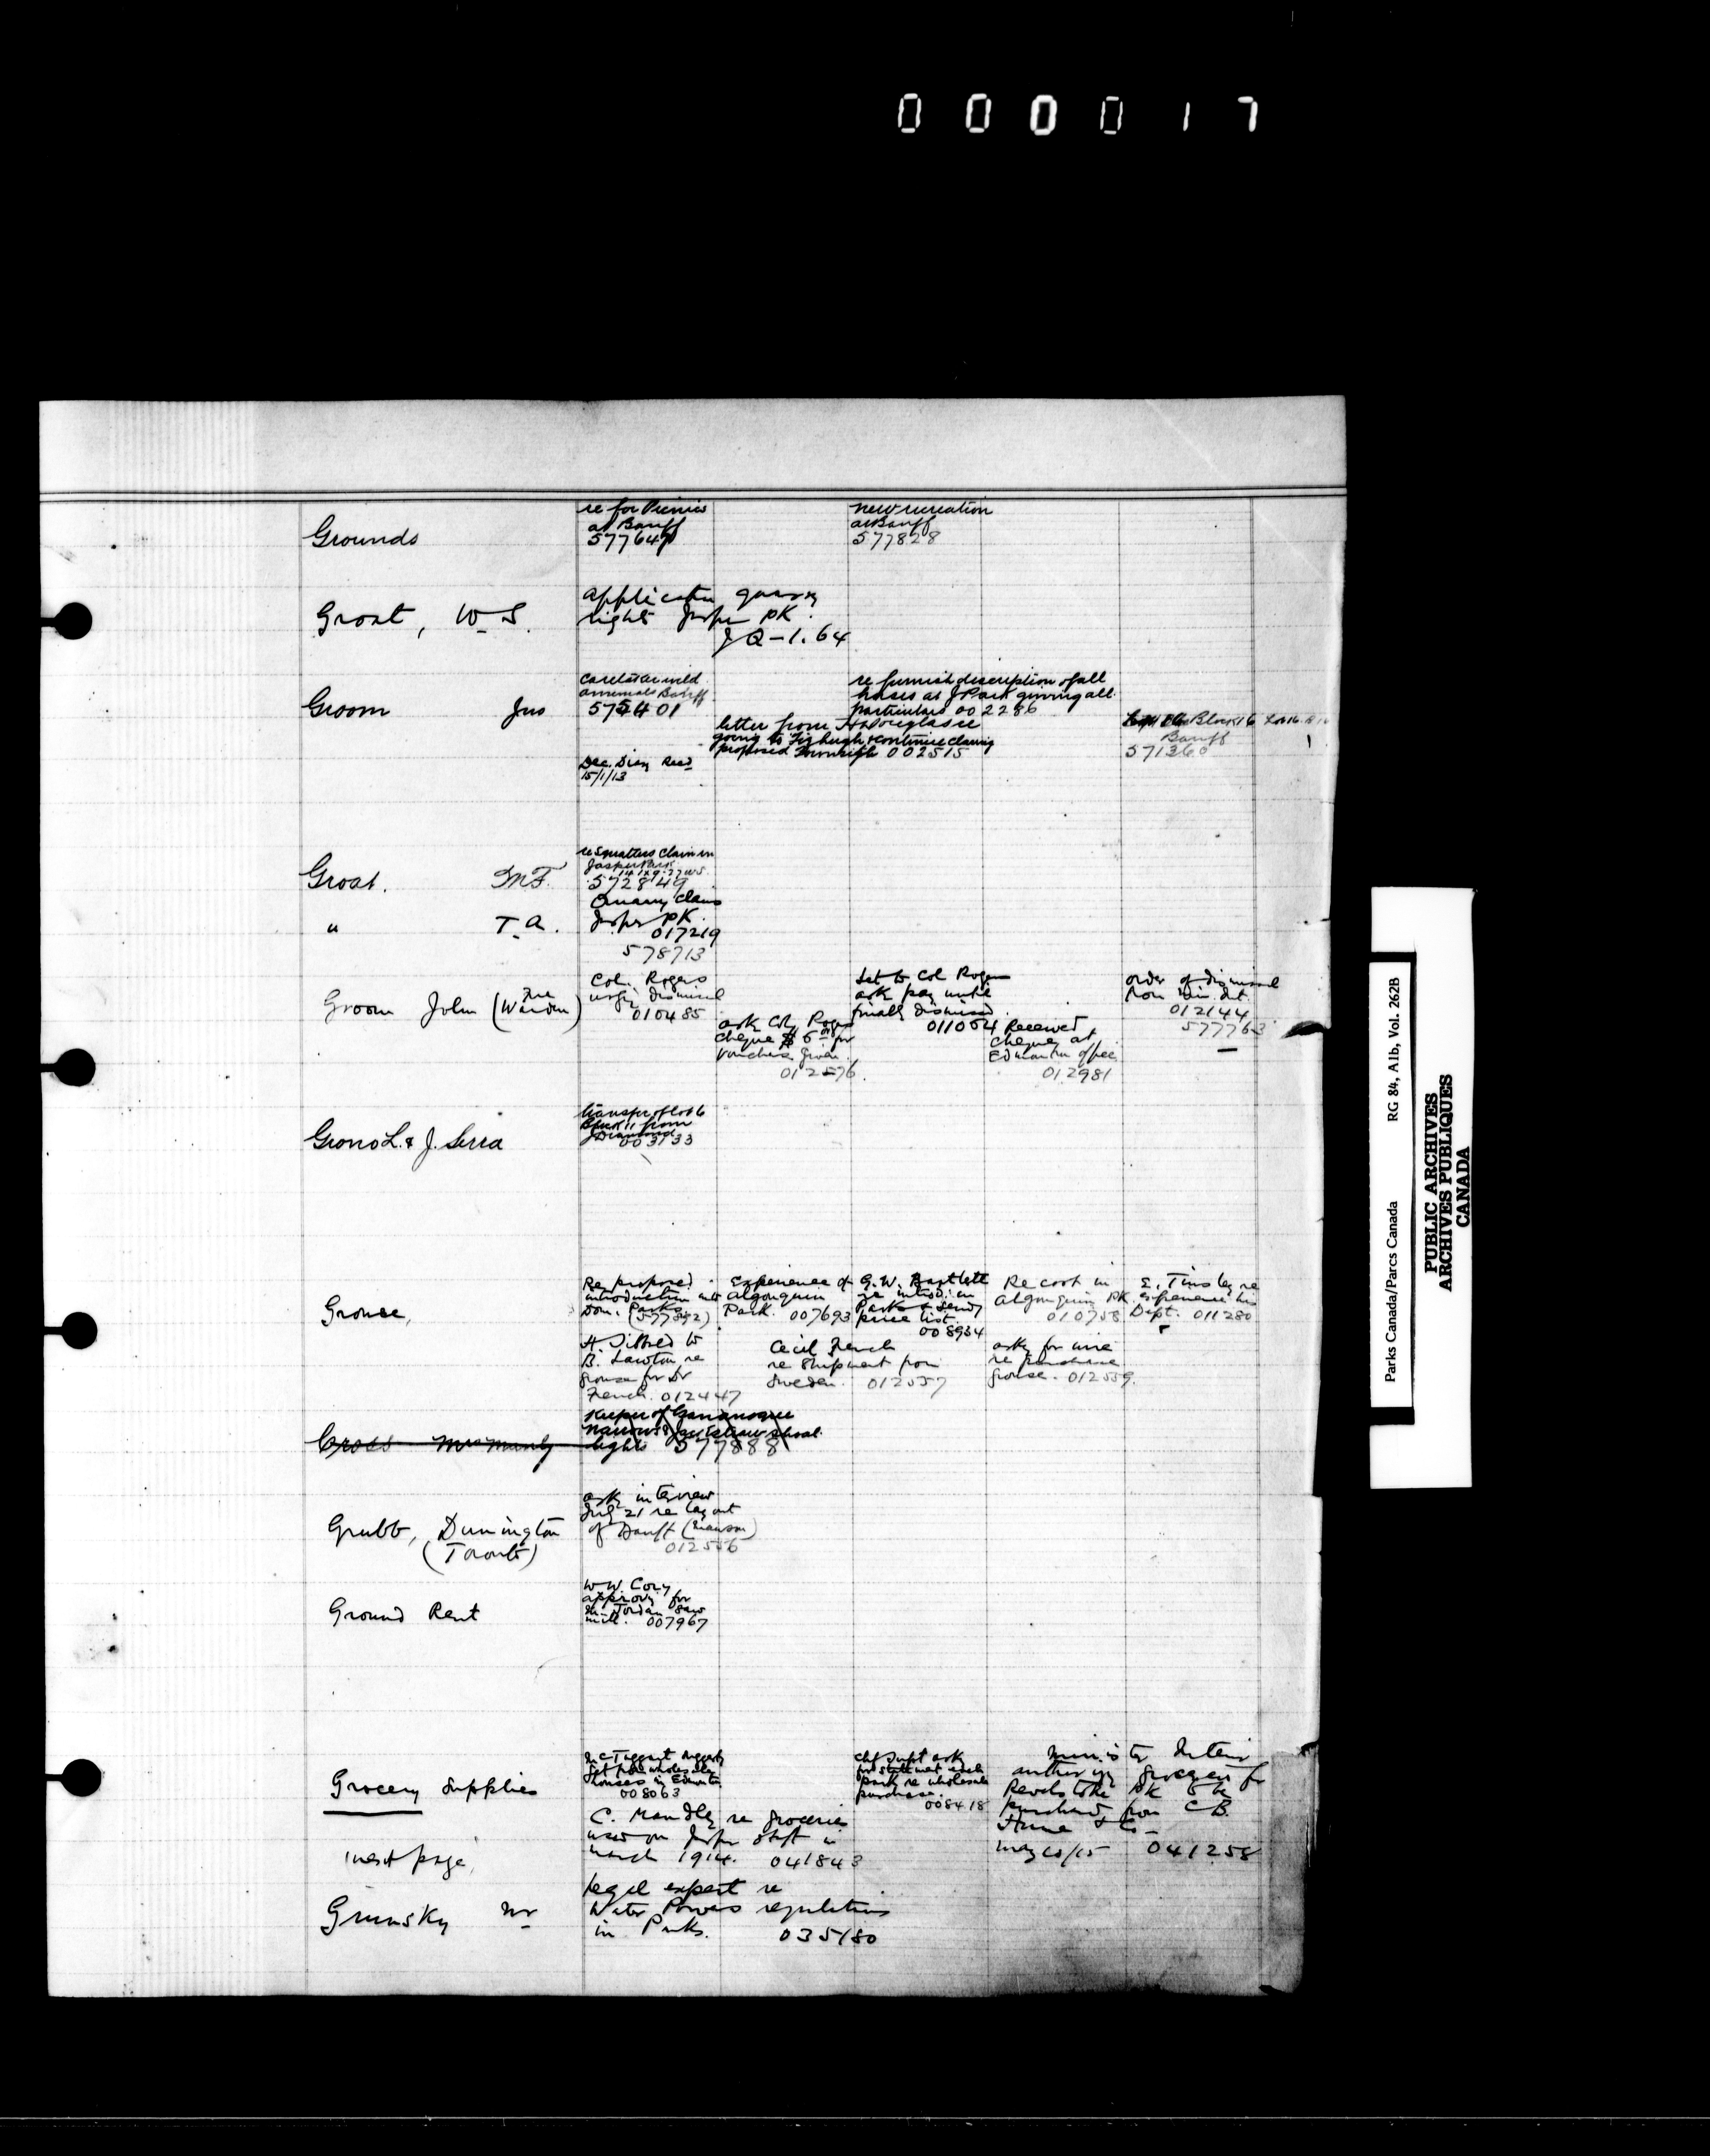 000017
Grounds
re for Picnics
at Banff
577649
new recreation
at Banff
577828
Groat, W. S.
application quarry
rights Jasper PK.
J Q-1.64
Groom Jno
Caretaker wild
animals Banff
575401
Dec. Diary Recd
15/1/13
letter from
going to continue clearing
proposed Townsite 002515
re furnish description of all
horses at J Park giving all
particulars 002286
Block 16 Lot 16
Banff
571360
Groat. M.F.
re Squatters claim in
Jasper Park
572849
" T. A.
Quarry claim
Jasper PK.
017219
578713
Groom John (Fire Warden)
Col. Rogers
urging dismissal
010485
ask Col. Rogers
cheque $5 for
vouchers given.
012576.
Let to Col Rogers
ask pay until
finally dismissed.
011054
Received
cheque at
Edmonton office
012981
order of dismissal
from
012144
577763
Grono L. & J. Serra
transfer of lot 6
Block 11 from
J Diamond
003133
Grouse,
Re proposed
introduction into
Dom. Parks
(577892)
Experience of
Algonquin
Park. 007693
G. W. Bartlett
re introd. in
Parks & sends
price list.
008934
Re cost in
Algonquin PK.
010758
E. Tinsley re
experience his
Dept. 011280
H. to
B. Lawton re
grouse for Dr
French. 012447
Cecil French
re Shipment from
Sweden. 012557
asks for wire
re purchase
grouse. 012559.
Cross Mrs Manly
Keeper of Gananoque
Narrows & Jackstraw shoal
lights 577888
Grubb, Dunington
(Toronto)
ask interview
July 21 re lay out
of Banff (Mawson)
012556
Ground Rent
W W Cory
approves for
Jordan saw
mill. 007967
Grocery Supplies
McTaggart suggests
get from wholesale
houses in Edmonton
008063
Chf Supt ask
for statement each
park re wholesale
purchase.
008418
Minister Interior
authorizing groceries for
Revelstoke PK to be
purchased from C B.
Hume & Co -
May 20/15 041258
C. Mandley re groceries
used on Jasper staff in
March 1914. 041843
next page,
Grunsky Mr
legal expert re
Water Powers regulations
in Parks. 035180
Parks Canada/Parcs Canada RG 84, A1b, Vol. 262B
PUBLIC ARCHIVES
ARCHIVES PUBLIQUES
CANADA